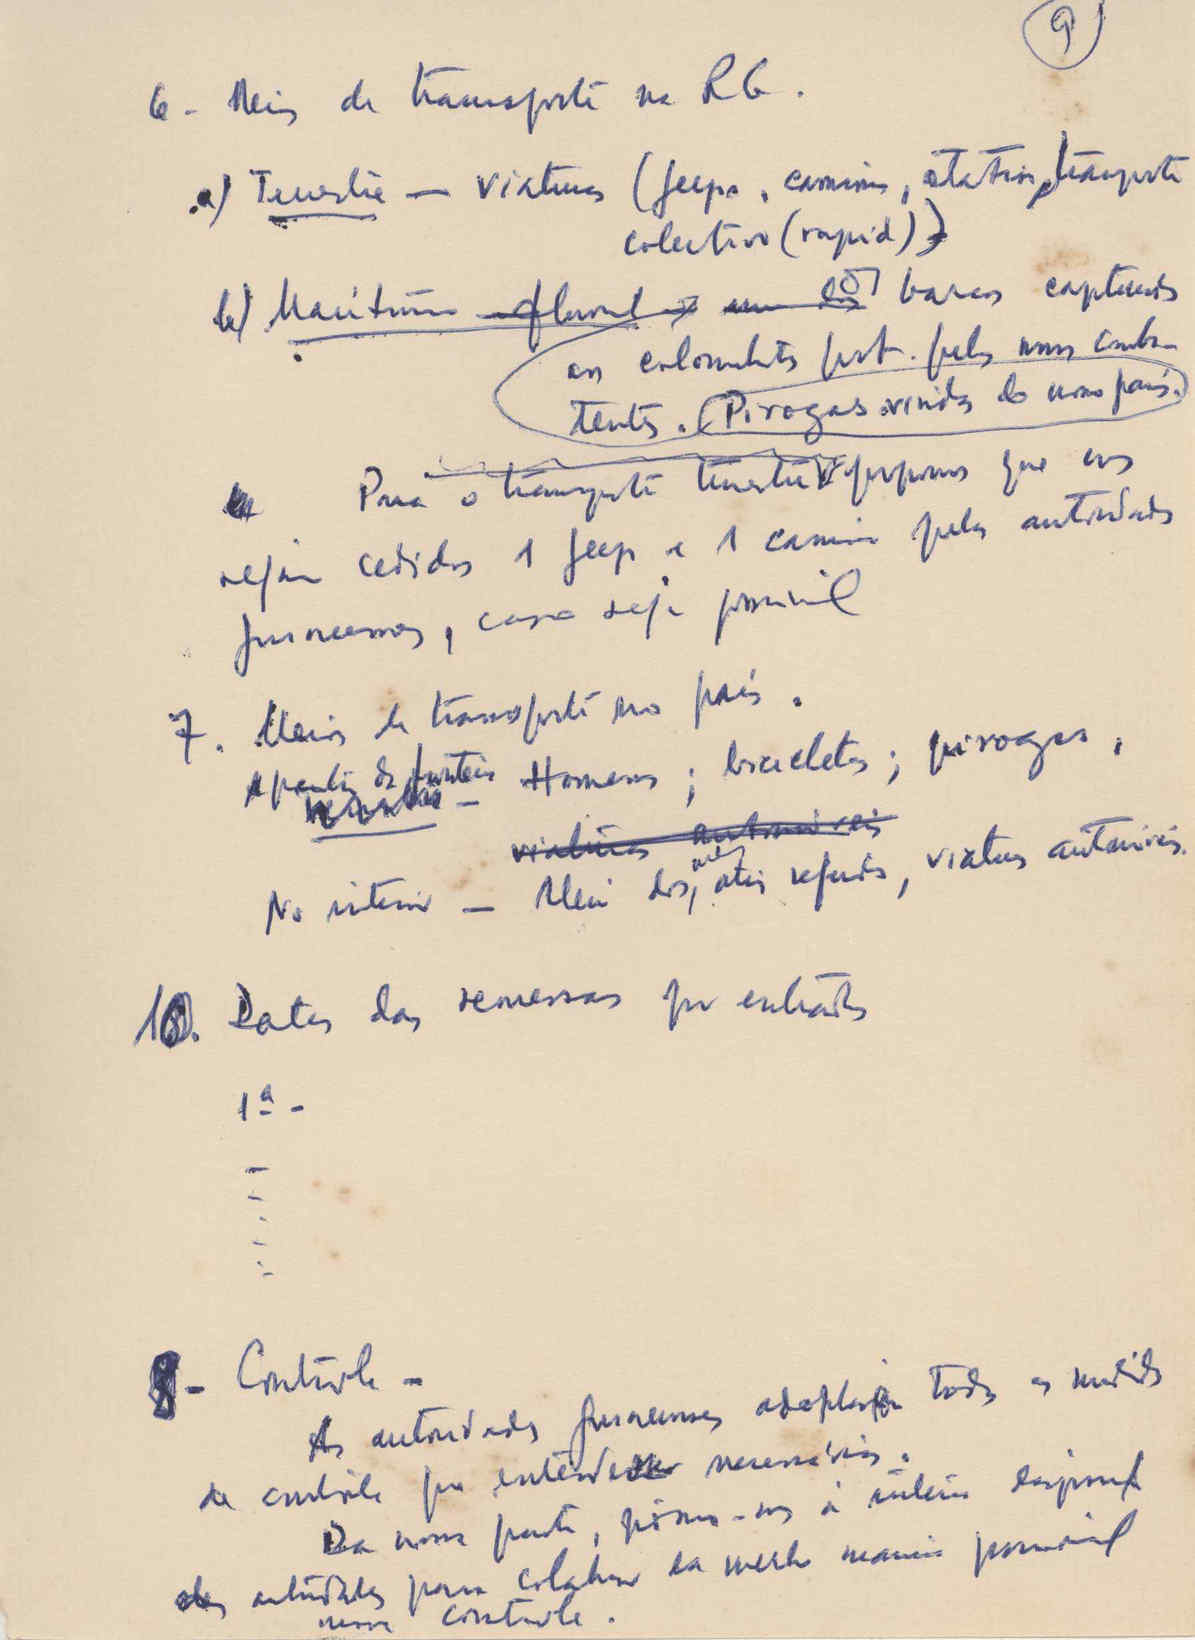 9
6 - Meios de transporte na R.G.
a) Terrestre — Viaturas (jeeps, camions, transporte
colectivo (rapid))
b) Marítimo - fluvial - barcos capturados
aos colonialistas port. pelos nossos comba-
tentes. (Pirogas vindas do nosso país.)
Para o transporte terrestre proponos que nos
sejam cedidos 1 jeep e 1 camion pelas autoridades
guineenses, caso seja possível
7. Meios de transporte no país.
A partir da fronteira - Homens; bicicletas; pirogas,
viaturas automóveis
No interior — Meios dos, atrás referidos, viaturas automóveis.
10. Datas das remessas por entradas
1ª -
8 - Contrôle -
As autoridades guineenses adoptarão todas as medidas
de contrôle que entender necessárias.
Da nossa parte, pômo-nos à inteira disposição
das autoridades para colaborar da melhor maneira possível
nesse contrôle.